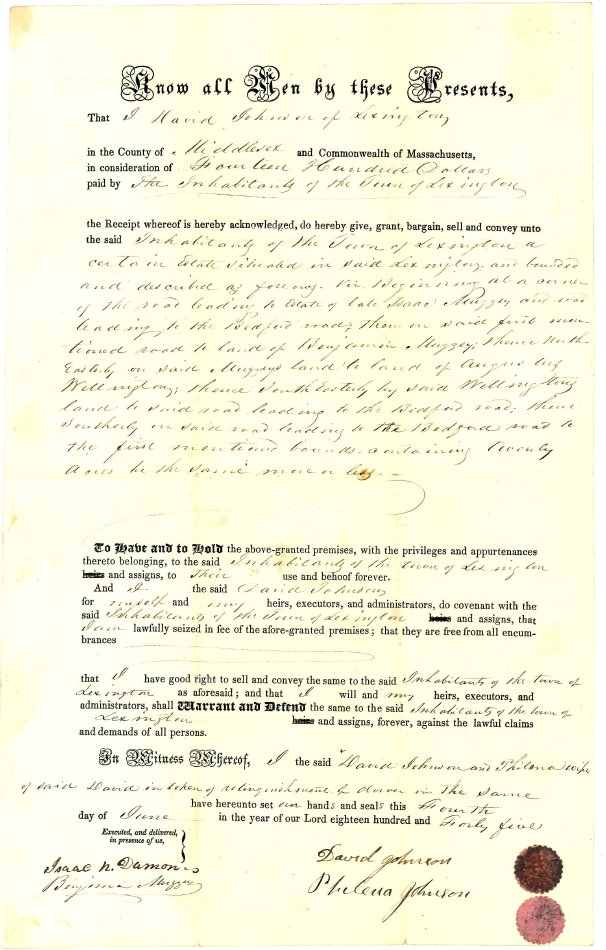 Know all Men by these Presents,
That I David Johnson of Lexington,
in the County of Middlesex and Commonwealth of Massachusetts,
in consideration of Fourteen Hundred Dollars
paid by the Inhabitants of the Town of Lexington
the Receipt whereof is hereby acknowledged, do hereby give, grant, bargain, sell and convey unto
the said Inhabitants of the Town of Lexington a
certain Estate situated in said Lexington, and bounded
and described as follows. viz. Beginning at a corner
of the road leading to Estate of late Isaac Muzzey and road
leading to the Bedford road; then on said first men-
tioned road to land of Benjamin Muzzey; thence North
Easterly on said Muzzeys land to land of Augustus
Wellington; thence South Easterly by said Wellingtons
land to said road leading to the Bedford road; thence
Southerly on said road leading to the Bedford road to
the first mentioned bounds. containing twenty
Acres be the same more or less.
To Have and to Hold the above-granted premises, with the privileges and appurtenances
thereto belonging, to the said Inhabitants of the town of Lexington
heirs and assigns, to their use and behoof forever.
And I the said David Johnson
for myself and my heirs, executors, and administrators, do covenant with the
said Inhabitants of the Town of Lexington heirs and assigns, that
I am lawfully seized in fee of the afore-granted premises; that they are free from all encum-
brances
that I have good right to sell and convey the same to the said Inhabitants of the town of
Lexington as aforesaid; and that I will and my heirs, executors, and
administrators, shall Warrant and Defend the same to the said Inhabitants of the town of
Lexington heirs and assigns, forever, against the lawful claims
and demands of all persons.
In Witness Whereof, I the said David Johnson and Philena wife
of said David in token of relinquishment of dower in the same
have hereunto set our hands and seals this Fourth
day of June in the year of our Lord eighteen hundred and Forty five
Executed, and delivered,
in presence of us,
Isaac N. Damon
Benjamin Muzzey
David Johnson
Philena Johnson